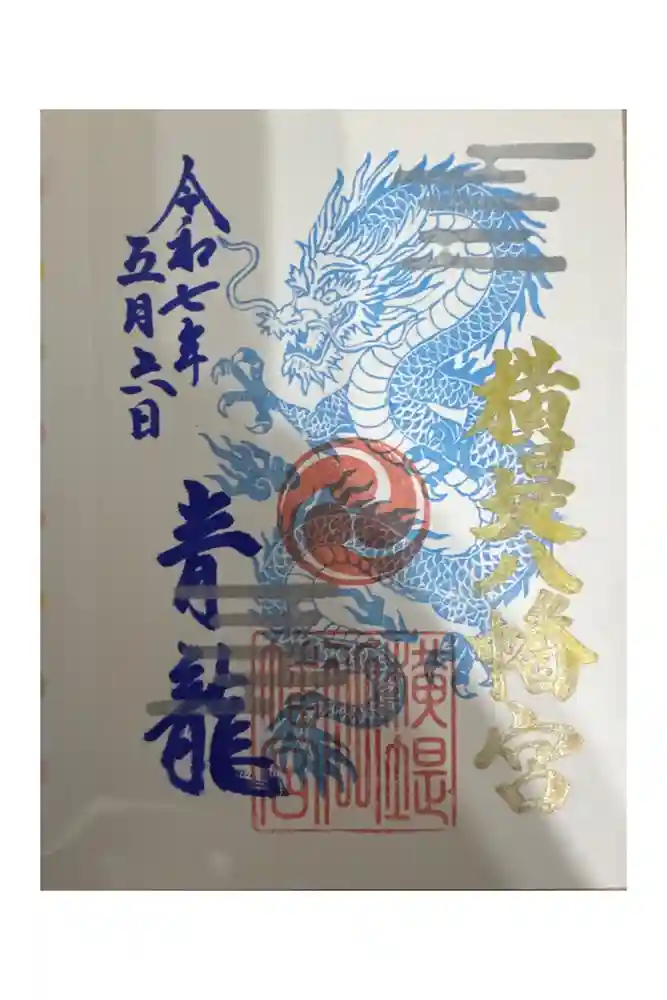 横堤八幡宮
横堤
令和七年
五月六日
青龍